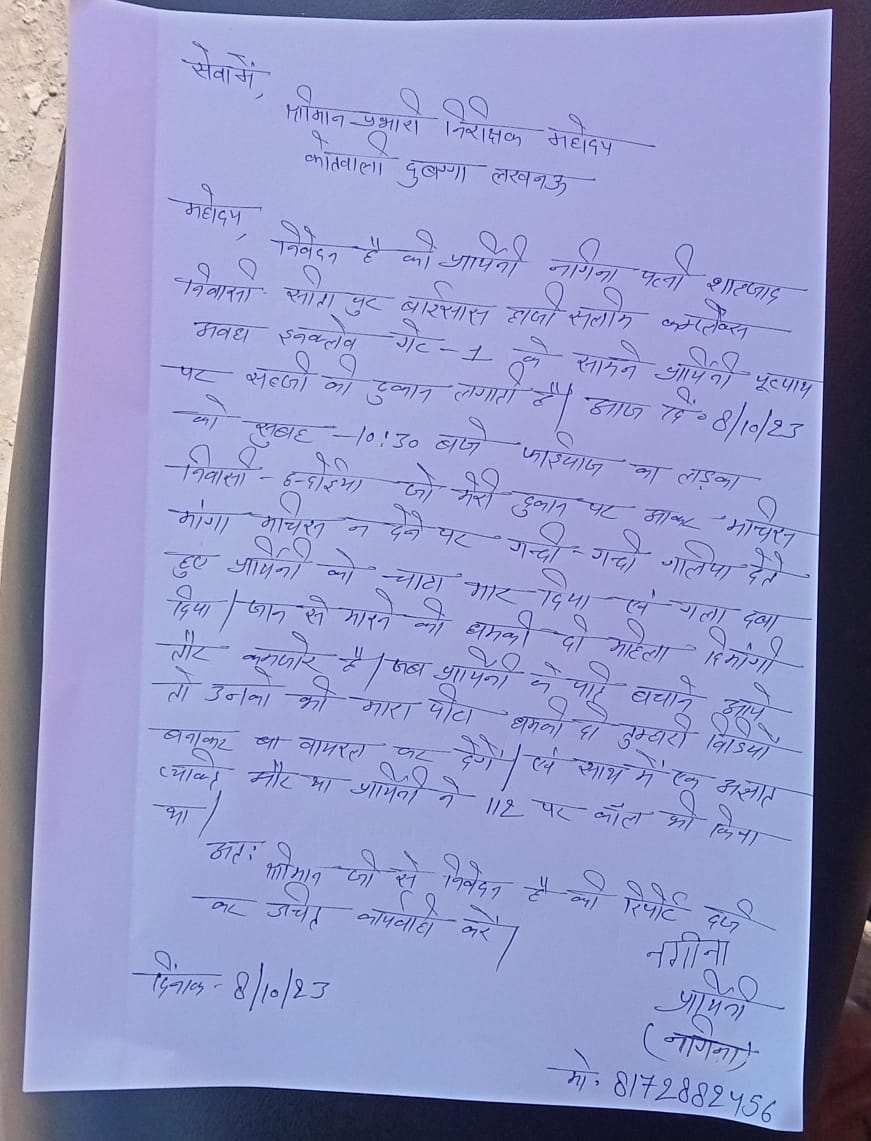 सेवा में,
श्रीमान प्रभारी निरीक्षक महोदय
कोतवाली दुबग्गा लखनऊ
महोदय,
निवेदन है की प्रार्थिनी नगिना पत्नी शाहजाद
निवासी सीता पुर बाईपास हाजी सलीम कम्प्लेक्स
अवध इनक्लेव गेट-1 के सामने प्रार्थिनी फूटपाथ
पर सब्जी की दुकान लगाती है। आज दि० 8/10/23
को सुबह -10:30 बजे फाईयाज का लड़का
निवासी - जो मेरी दुकान पर आकर माचिस
मांगा माचिस न देने पर गन्दी-गन्दी गालिया देते
हुए प्रार्थिनी को चाटा मार दिया एवं गला दबा
दिया। जान से मारने की धमकी दी महिला दिमांगी
तौर कमजोर है। जब प्रार्थिनी के पति बचाने आये
तो उनको भी मारा पीटा धमकी दी तुम्हारी विडियों
बनाकर वायरल कर देगें। एवं साथ में एक अज्ञात
व्यक्ति और था प्रार्थिनी ने 112 पर कॉल भी किया
था।
अतः
श्रीमान जी से निवेदन है की रिपोर्ट दर्ज
कर उचित कार्यवाही करें।
नगीना
दिंनाक - 8/10/23
प्रार्थिनी
(नगिना)
मो. 8172882456